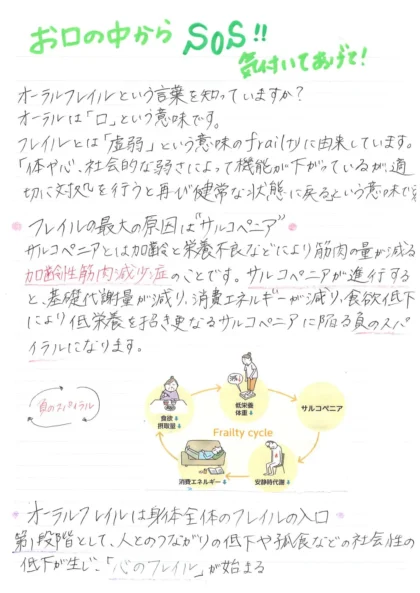 お口の中から SOS!!
気付いてあげて!
オーラルフレイルという言葉を知っていますか?
オーラルは「口」という意味です。
フレイルとは「虚弱」という意味のfrailtyに由来しています。
「体や心、社会的な弱さによって機能が下がっているが、適
切に対処を行うと再び健常な状態に戻るという意味で
フレイルの最大の原因は“サルコペニア”
サルコペニアとは加齢と栄養不良などにより筋肉の量が減る
加齢性筋肉減少症のことです。サルコペニアが進行する
と、基礎代謝量が減り、消費エネルギーが減り、食欲低下
により低栄養を招き更なるサルコペニアに陥る負のスパ
イラルになります。
負のスパイラル
食欲
摂取量↓
低栄養
体重↓
サルコペニア
Frailty cycle
消費エネルギー↓
安静時代謝↓
オーラルフレイルは身体全体のフレイルの入口
第1段階として、人とのつながりの低下や孤食などの社会性の
低下が生じ、「心のフレイル」が始まる